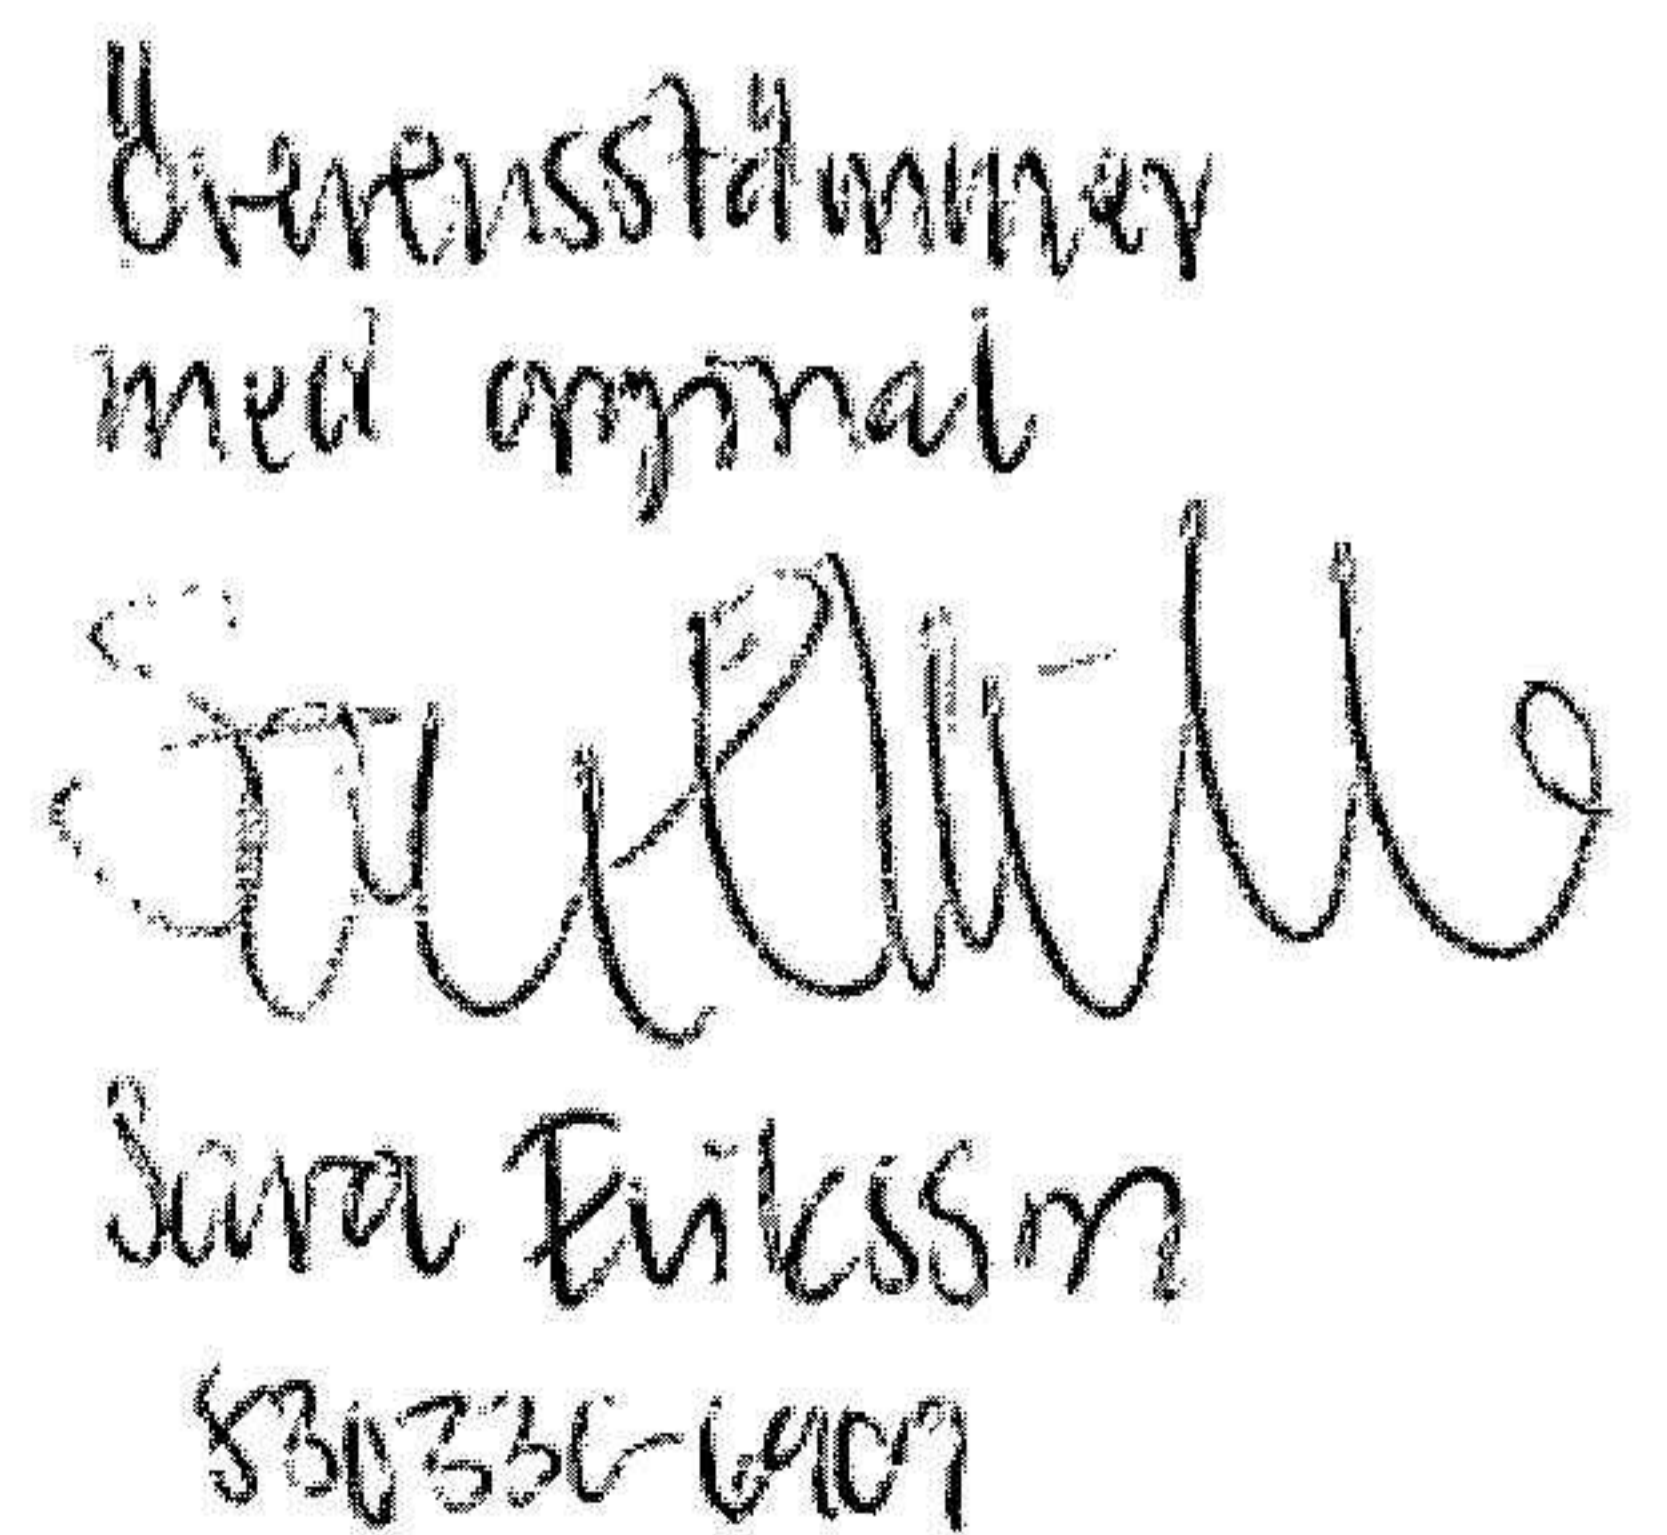 Överensstämmer
med original
Sara Eriksson
830330-6909